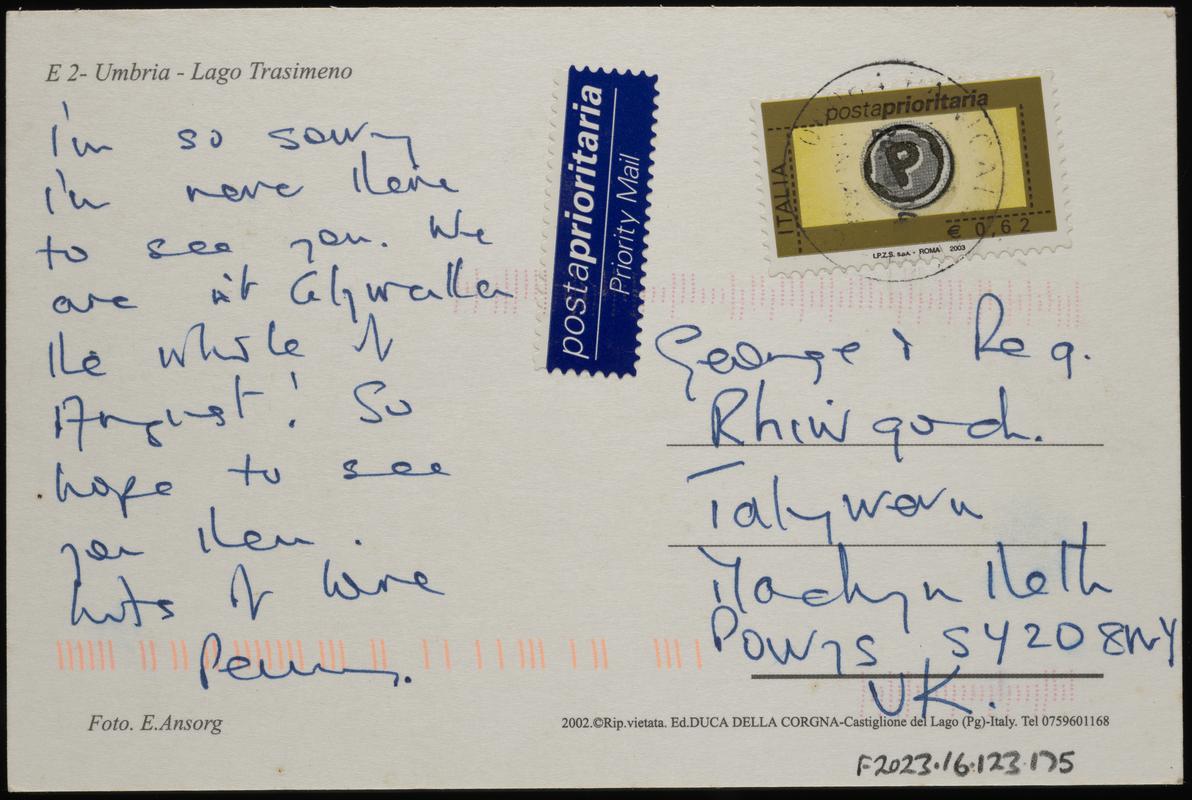 E 2- Umbria - Lago Trasimeno
I'm so sorry
I'm never there
to see you. We
are at
the whole of
August! So
hope to see
you then.
lots of love
Penny.
Foto. E.Ansorg
postaprioritaria
Priority Mail
postaprioritaria
ITALIA
P
€ 0,62
I.P.Z.S. S.p.A. - ROMA 2003
George & Reg.
Rhiwgoch.
Talywern
Machynlleth
Powys SY20 8NY
UK.
2002.©Rip.vietata. Ed.DUCA DELLA CORGNA-Castiglione del Lago (Pg)-Italy. Tel 0759601168
F2023.16.123.175